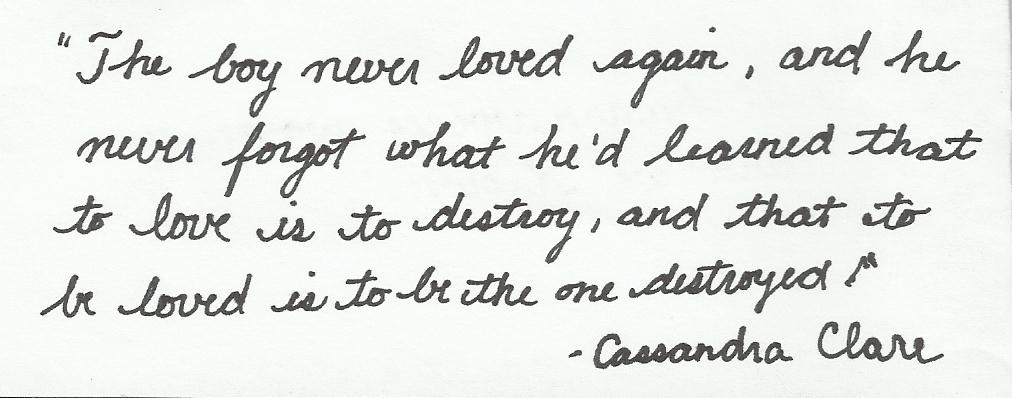 "The boy never loved again, and he
never forgot what he'd learned that
to love is to destroy, and that to
be loved is to be the one destroyed!"
-Cassandra Clare